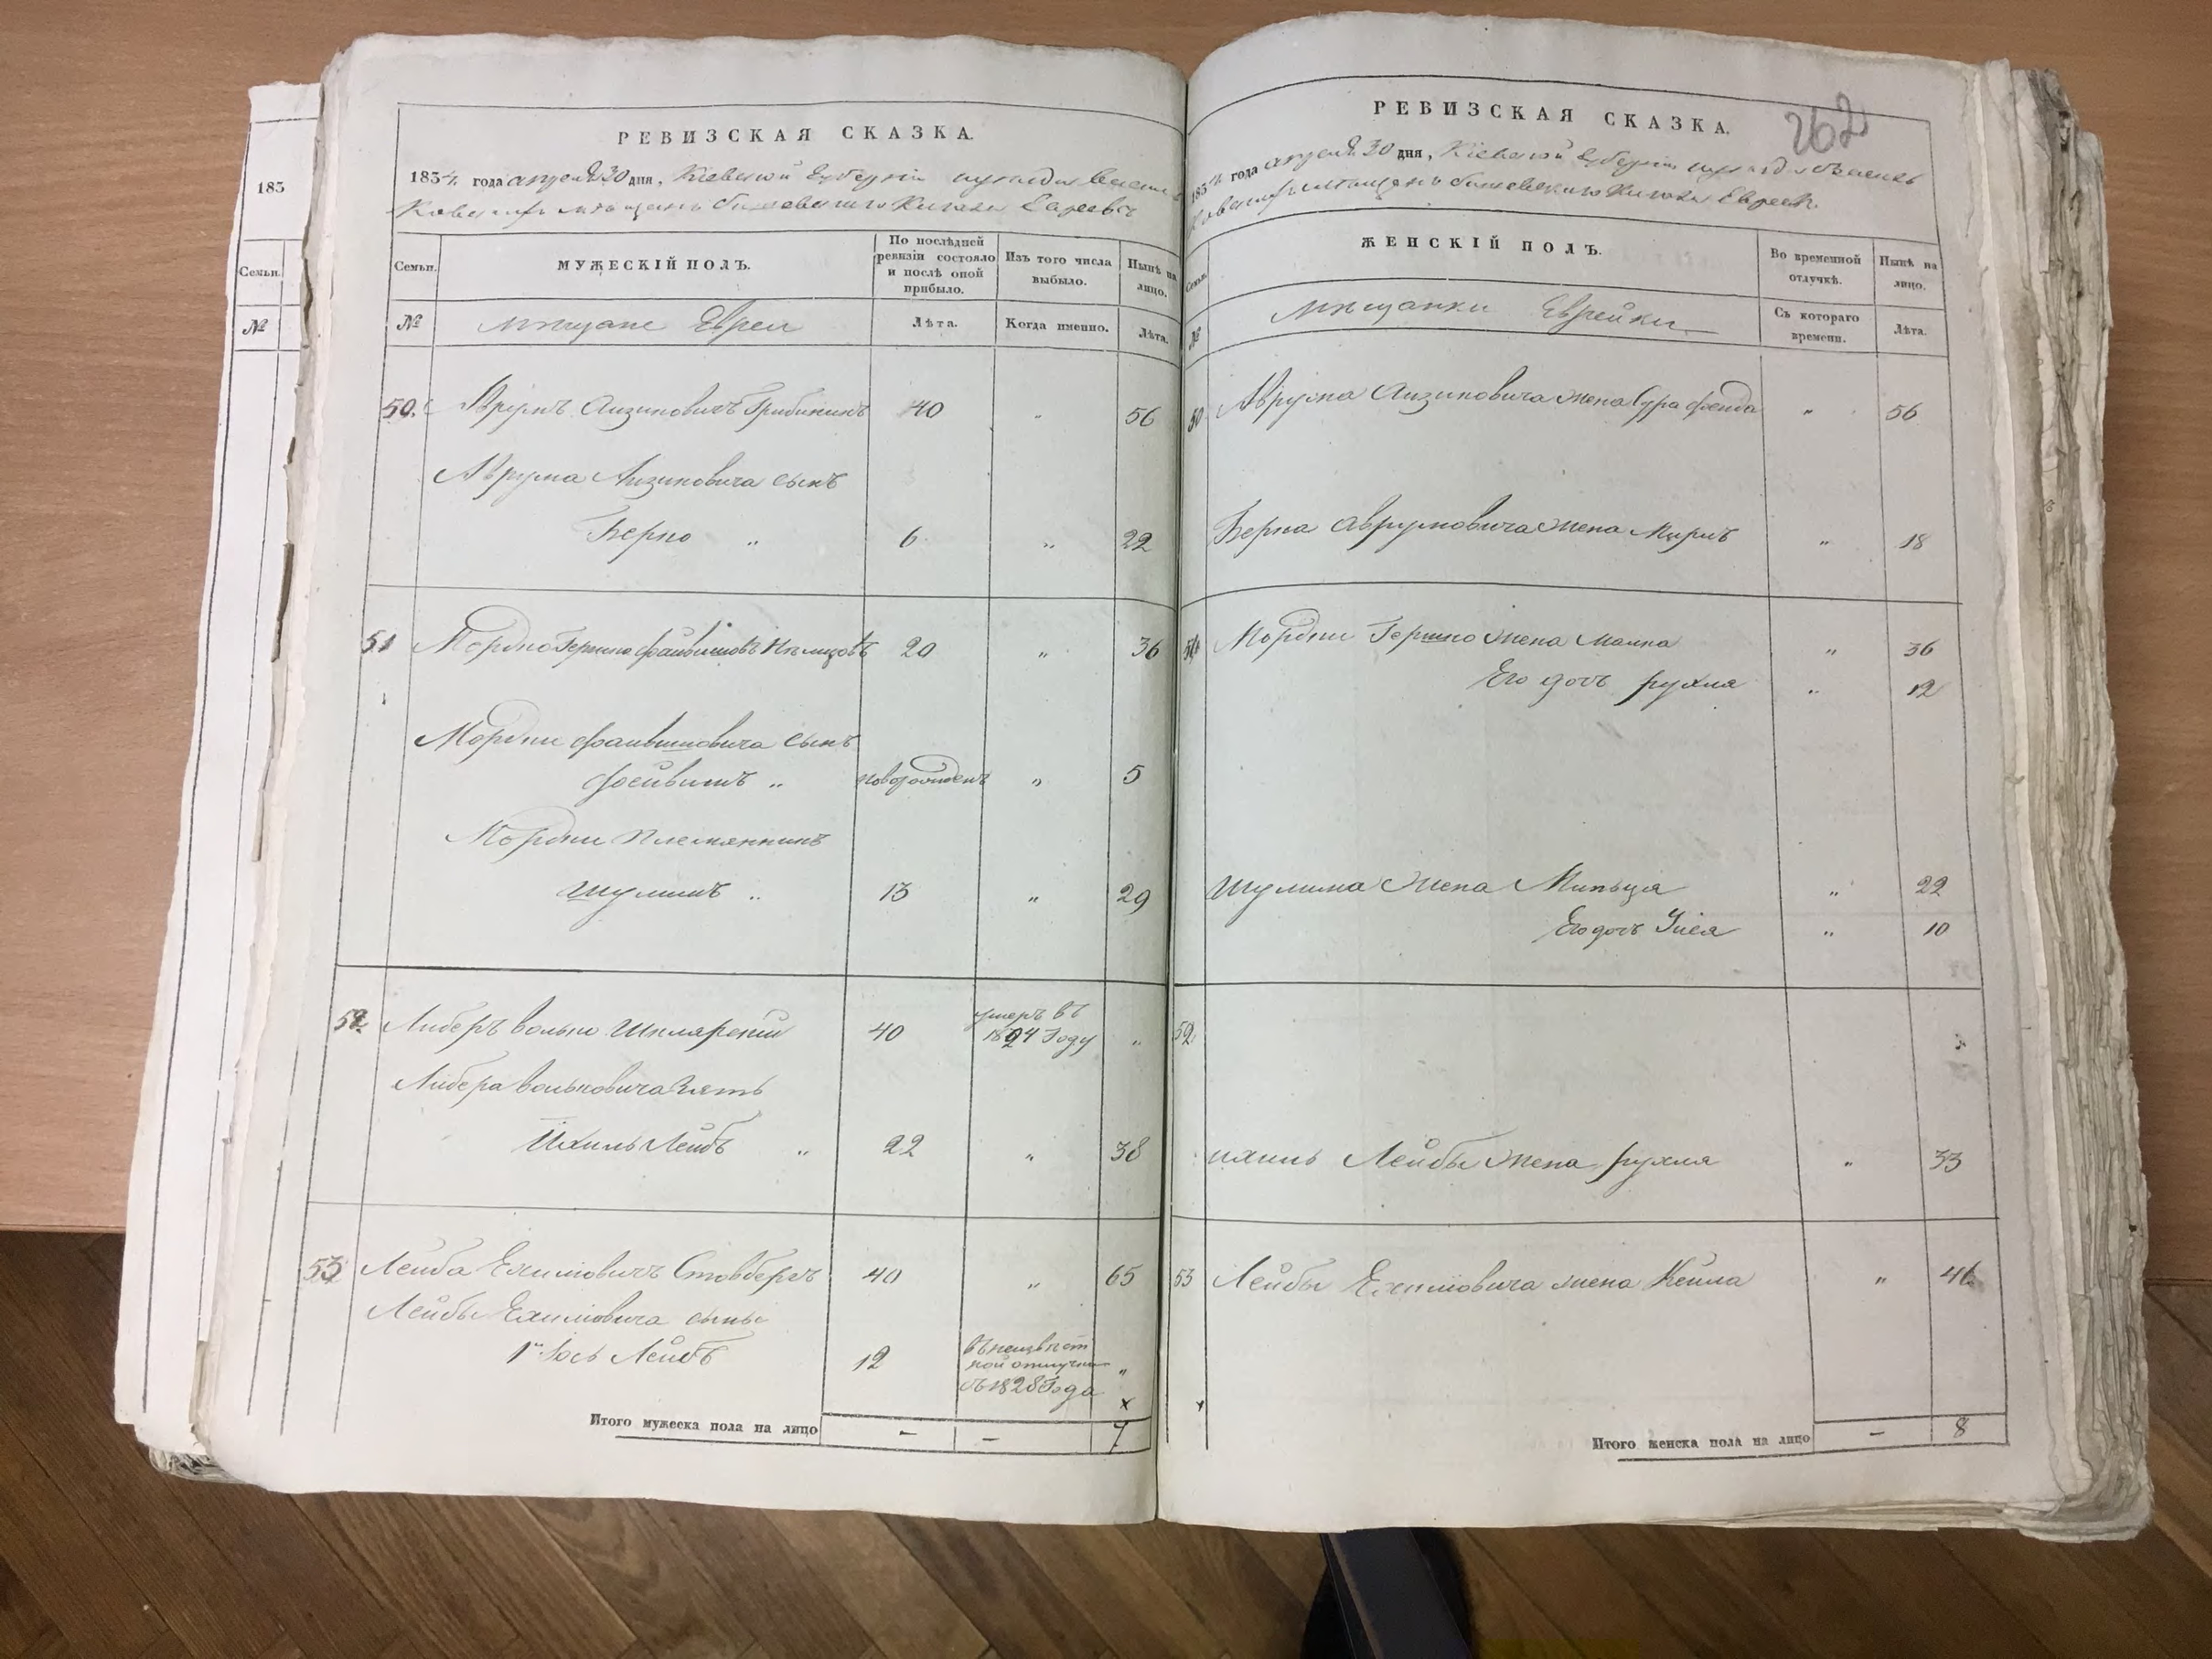 185
Семьи.
№
РЕВИЗСКАЯ СКАЗКА.
1834 года апреля 30 дня, Кіевской Губерніи
мѣщанъ Евреевъ
Семьи.
МУЖЕСКІЙ ПОЛЪ.
По послѣдней ревизіи состояло и послѣ оной прибыло.
Изъ того числа выбыло.
Нынѣ на лицо.
№
мѣщане Евреи
Лѣта.
Когда именно.
Лѣта.
50. Аврумъ Аизиковичъ 40 „ 56
Аврума Аизиковича сынъ
Берко „ 6 „ 22
51 Мордко Гершко Фаивишовъ 20 „ 36
Мордки Фаивишовича сынъ
Фейвишъ „ новорожденъ „ 5
Мордки племянникъ
Шулимъ „ 13 „ 29
52 Либеръ Волько Шкляреский 40 умеръ въ 1824 Году „
Либера Вольковича Зять
Ихиль Лейбъ „ 22 „ 38
53 Лейба Ехимовичъ Стовбергъ 40 „ 65
Лейбы Ехимовича сыны
1й Іось Лейбъ 12 въ неизвѣстной отлучки съ 1828 Года „
x
Итого мужеска пола на лицо - - 7
262
РЕВИЗСКАЯ СКАЗКА.
1834 года апреля 30 дня, Кіевской Губерніи
Евреек
Семьи.
ЖЕНСКІЙ ПОЛЪ.
Во временной отлучкѣ.
Нынѣ на лицо.
№
мѣщанки Еврейки
Съ котораго времени.
Лѣта.
50 Аврума Аизиковича жена Сура Фейда „ 56
Берка Аврумовича жена Мирка „ 18
51 Мордки Гершко жена Малка „ 36
Его дочь рухля „ 12
Шулима жена Миньця „ 22
Его дочь „ 10
52
ихиль Лейбы жена рухля „ 33
53 Лейбы Ехимовича жена Кейла „ 46
x
Итого женска пола на лицо - 8